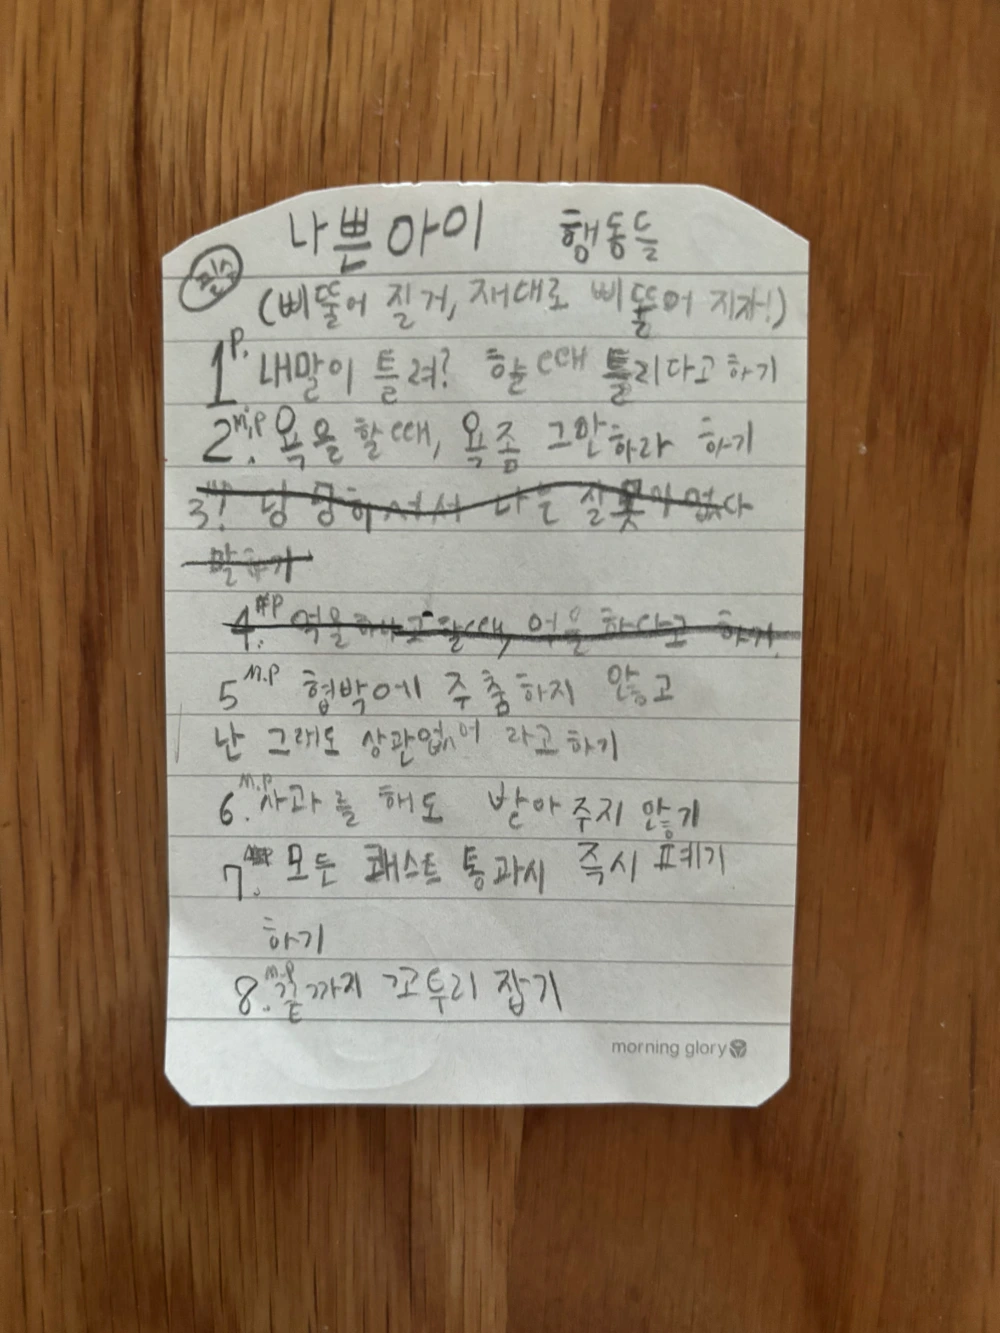 나쁜아이 행동들
필수
(삐뚤어 질거, 재대로 삐뚤어 지자!)
1. P. 내말이 틀려? 할때 틀리다고하기
2. M,P 욕을 할때, 욕좀 그만하라 하기
3. 당당하서서 나는 잘못가 없다
말하기
4. P 억울하다고 할때, 억울하다고 하기
5 M.P 협박에 주춤하지 않고
난 그래도 상관없어 라고하기
6. M.P 사과를 해도 받아주지 않기
7. 모든 퀘스트 통과시 즉시 포기
하기
8. M.P 끝까지 꼬투리 잡기
morning glory